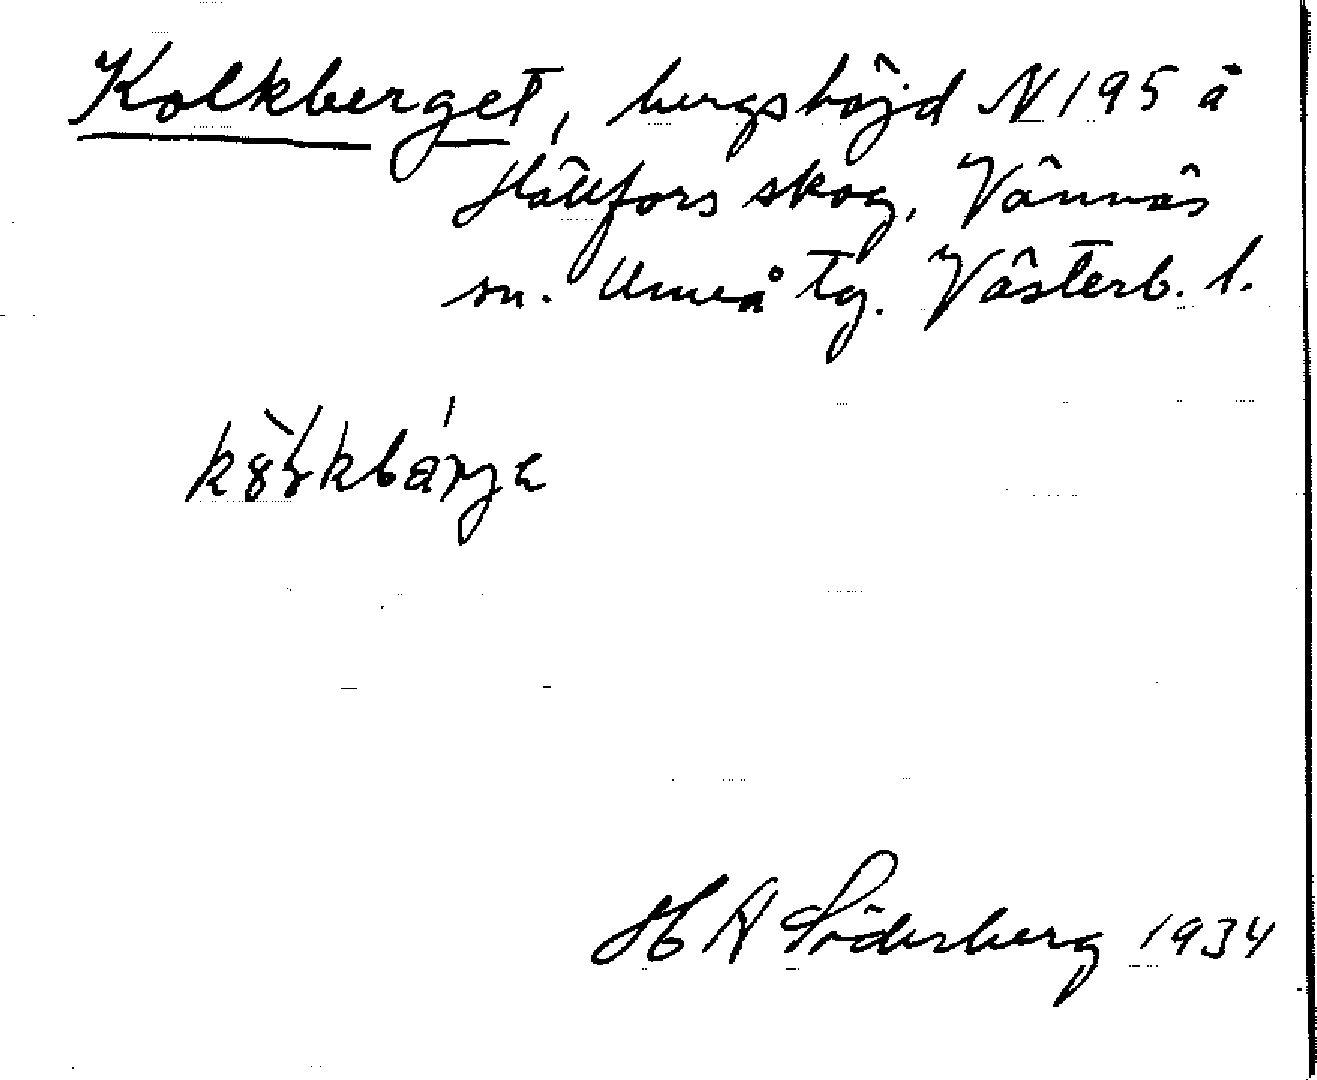 Kolkberget, bergshöjd N 195 å
Hällfors skog, Vännäs
sn. Umeå tg. Västerb. l.
H A Söderberg 1934